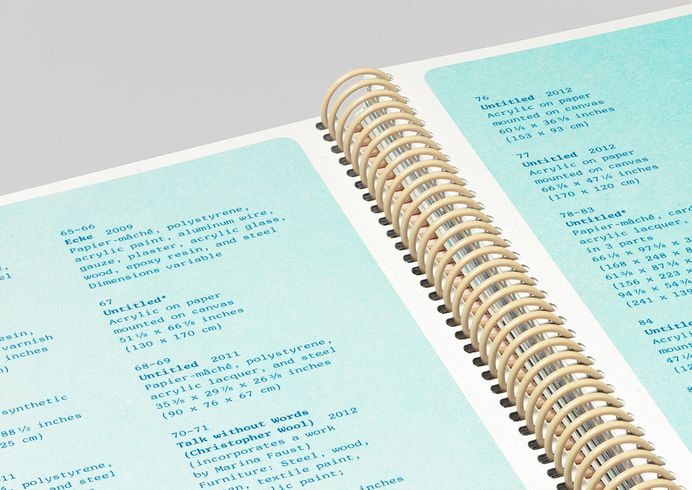 esin,
varnish
inches
synthetic
88½ inches
25 cm)
polystyrene,
and steel
inches
65–66
Ecke 2009
Papier-mâché, polystyrene,
acrylic paint, aluminum wire,
gauze, plaster, acrylic glass,
wood, epoxy resin, and steel
Dimensions variable
67
Untitled*
Acrylic on paper
mounted on canvas
51⅛ × 66⅞ inches
(130 × 170 cm)
68–69
Untitled 2011
Papier-mâché, polystyrene,
acrylic lacquer, and steel
35⅜ × 29⅞ × 26⅜ inches
(90 × 76 × 67 cm)
70–71
Talk without Words
(Christopher Wool) 2012
(incorporates a work
by Marina Faust)
Furniture: Steel, wood,
textile paint,
paint;
inches
76
Untitled 2012
Acrylic on paper
mounted on canvas
60¼ × 36⅝ inches
(153 × 93 cm)
77
Untitled 2012
Acrylic on paper
mounted on canvas
66⅞ × 47¼ inches
(170 × 120 cm)
78–83
Untitled*
Papier-mâché,
acrylic lacquer,
in 3 parts
66⅛ × 97⅝ ×
(168 × 248 ×
61⅜ × 87¾ ×
(156 × 223
94⅞ × 54¾
(241 × 139
84
Untitled
Acrylic
mounted
47¼
(12